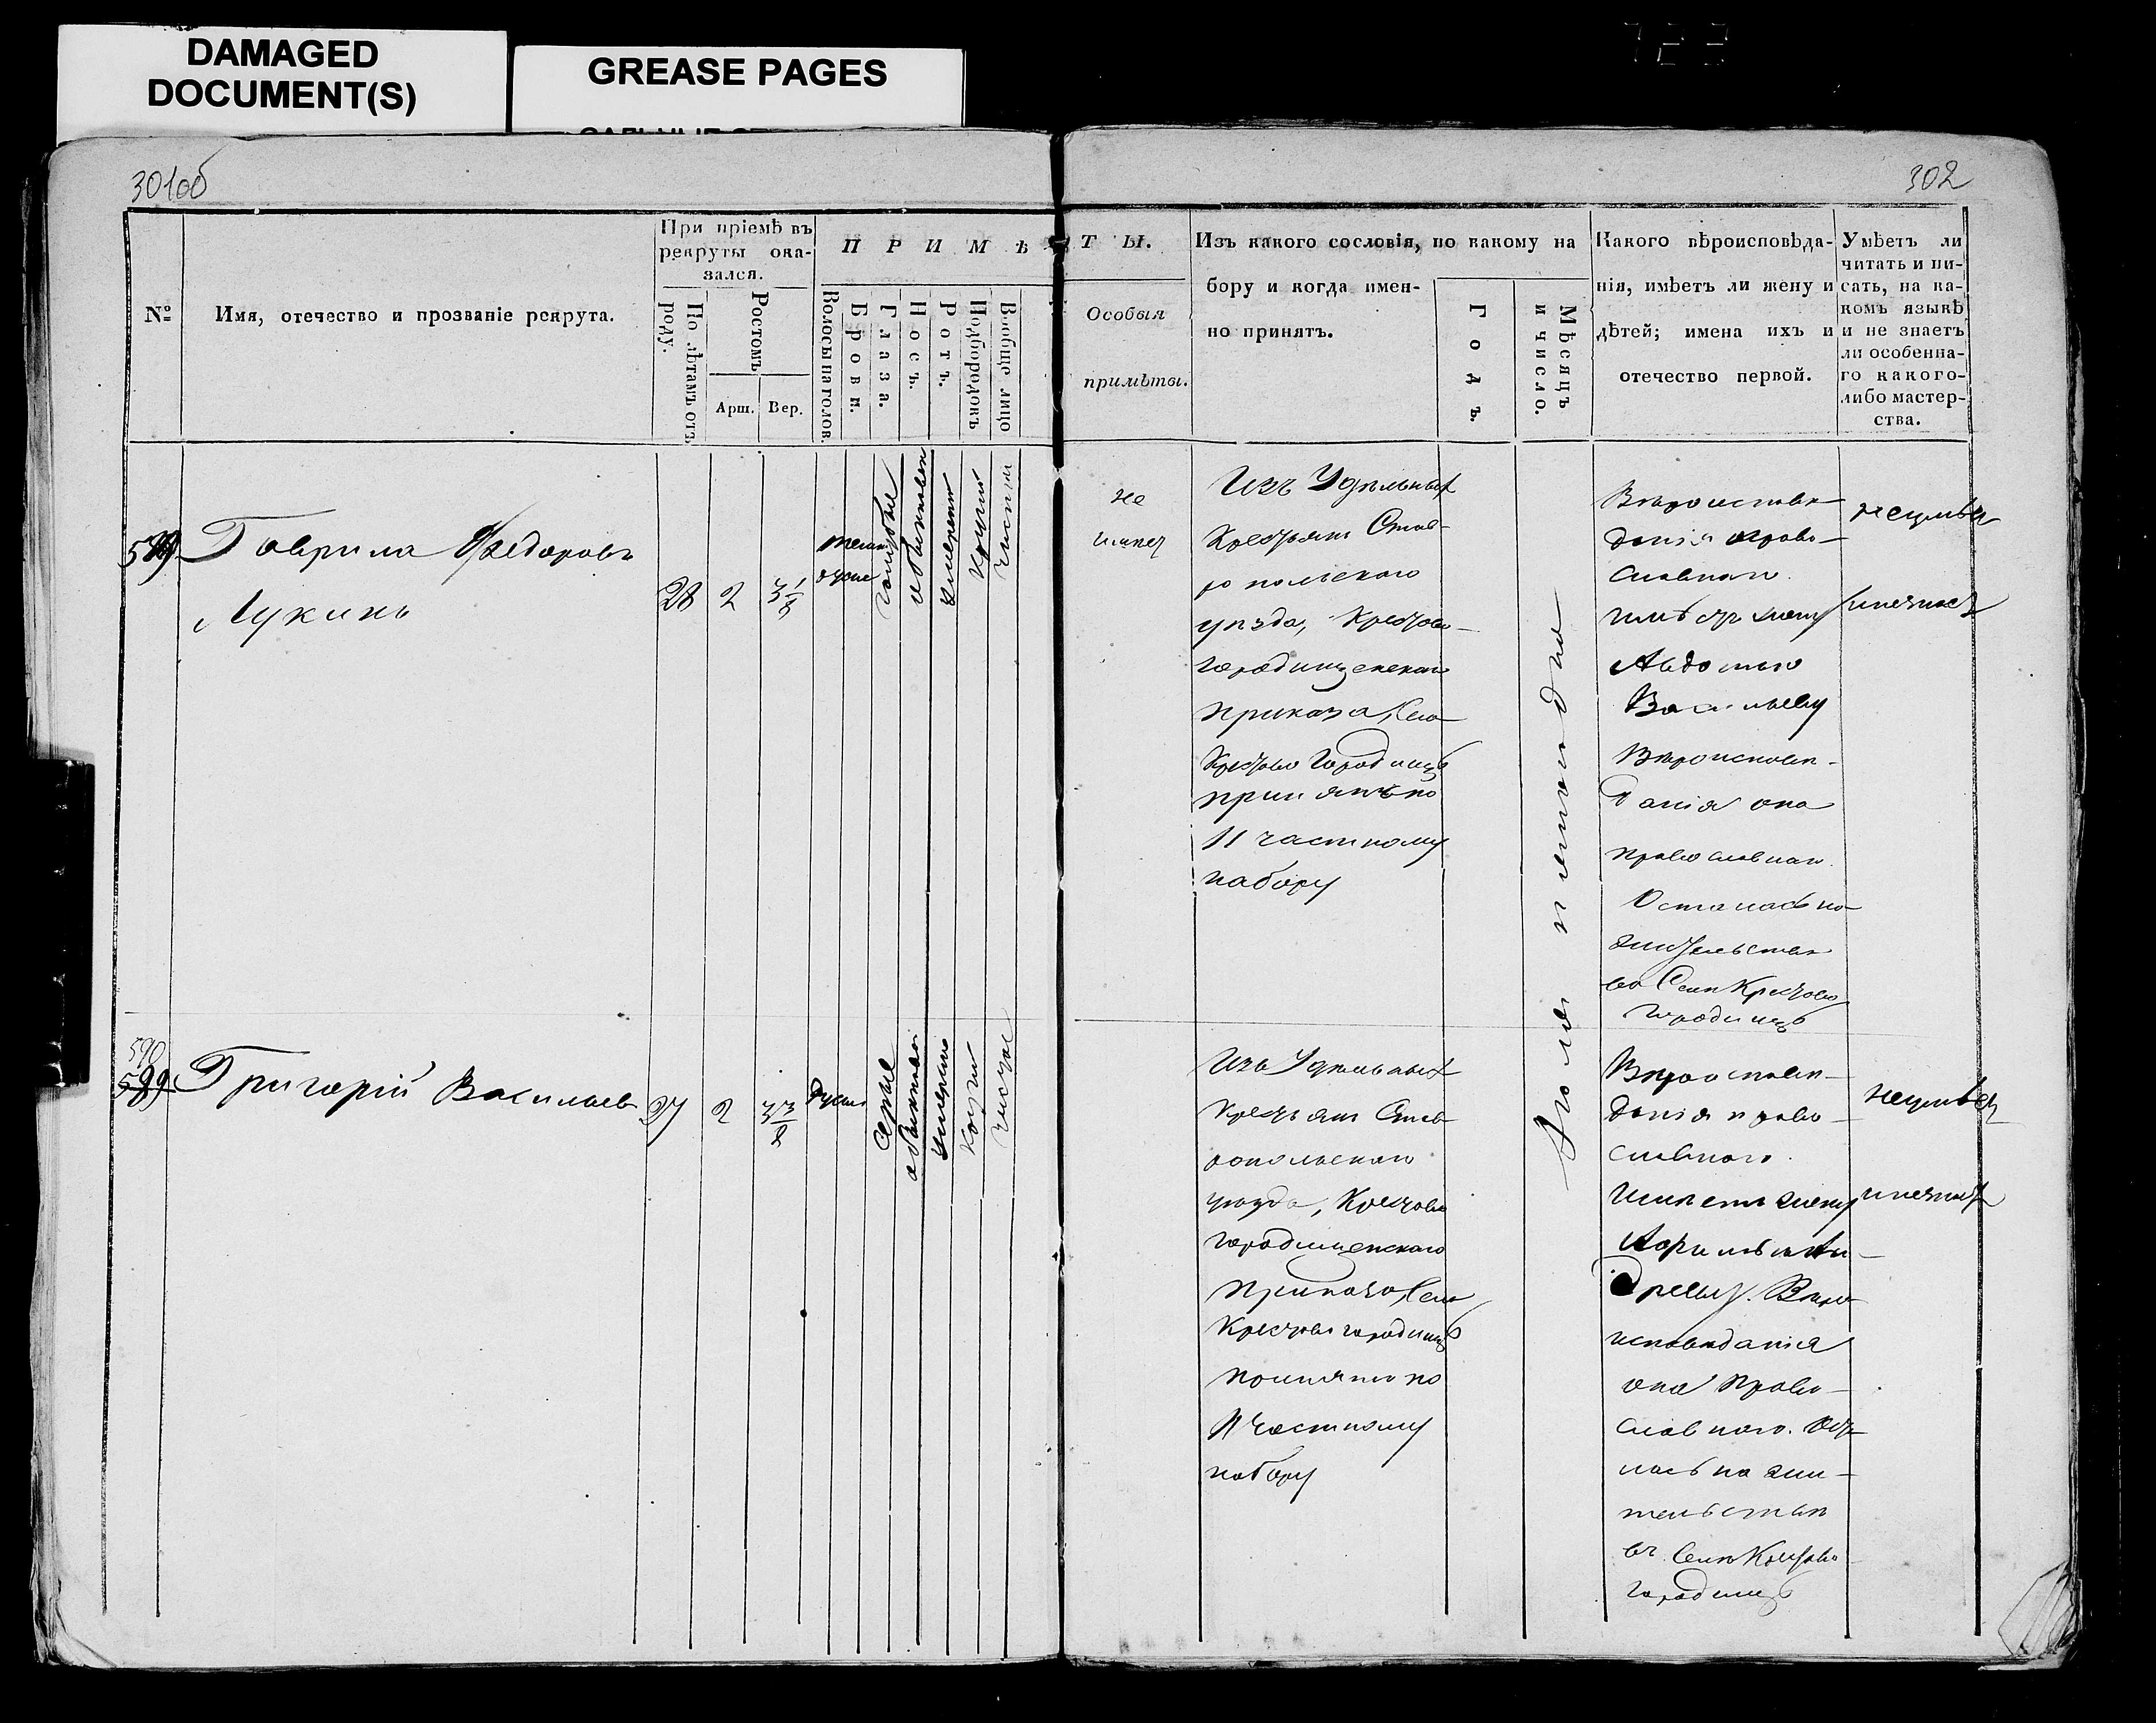 DAMAGED
DOCUMENT(S)
GREASE PAGES
301об
302
№
Имя, отечество и прозваніе рекрута.
При пріемѣ въ
рекруты ока-
зался.
По лѣтамъ отъ
роду.
Ростомъ
Арш.
Вер.
ПРИМѢ
ТЫ.
Волосы на голов.
Брови.
Глаза.
Носъ.
Ротъ.
Подбородокъ
Вообще лицо
Особыя
примѣты.
Изъ какого сословія, по какому на
бору и когда имен-
но принятъ.
Годъ.
Мѣсяцъ
и число.
Какого вѣроисповѣда-
нія, имѣетъ ли жену и
дѣтей; имена ихъ и
отечество первой.
Умѣетъ ли
читать и пи-
сать, на ка-
комъ языкѣ
и не знаетъ
ли особенна-
го какого-
либо мастер-
ства.
589
Гаврила Федоровъ
Лукинъ
28
2
3 1/8
темно
русые
голубые
обыкновен
умерен
круглый
чистое
не
имеет
Изъ Удѣльныхъ
Крестьянъ Став-
ропольскаго
уѣзда, Крестово
городищенскаго
приказа, села
Крестово Городищъ
принятъ по
11 частному
набору
Июля пятого дня
Вѣроисповѣ-
данія право-
славнаго.
имѣетъ жену
Авдотью
Васильеву
Вѣроисповѣ-
данія она
православнаго.
Осталась на
жительствѣ
во Селѣ Крестово
городищъ
неумѣет
и незнает
590
589
Григорій Васильевъ
27
2
3 3/8
русые
серые
обыкновен
умерено
круглый
чистое
Изъ Удѣльныхъ
Крестьянъ Став-
ропольскаго
уѣзда, Крестово
городищенскаго
приказа, села
Крестово городищъ
принятъ по
11 частному
набору
Вѣроисповѣ-
данія право-
славнаго.
Имѣетъ жену
Ан-
дрееву. Вѣро-
исповѣданія
она право-
славнаго. Оста-
лась на жи-
тельствѣ
въ Селѣ Крестово
городищъ
неумѣет
и незнает